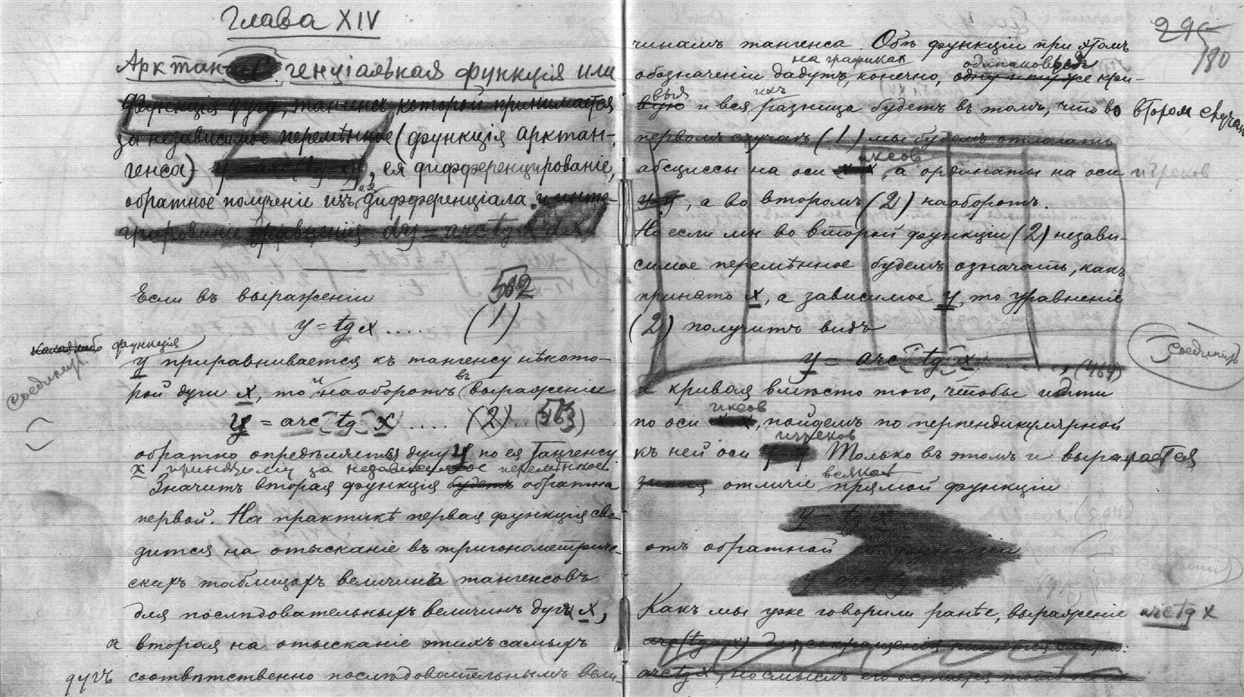 Глава XIV
Арктангенціальная функція или
функція дуги, тангенс которой принимается
за независимое перемѣнное (функція арктан-
генса), ея дифференцированіе,
обратное полученіе изъ ея дифференціала и инте-
грированіе dy = arctg x dx
Если въ выраженіи 582
y = tg x .... (1)
функція
y приравнивается къ тангенсу нѣкото-
соединит.
рой дуги x, то и наоборотъ въ выраженіи
y = arc tg x .... (2) ... (583)
обратно опредѣляется дуга y по ея тангенсу
x принятому за независимое перемѣнное.
Значитъ вторая функція будетъ обратна
первой. На практикѣ первая функція сво-
дится на отысканіе въ тригонометриче-
скихъ таблицахъ величинъ тангенсовъ
для послѣдовательныхъ величинъ дугъ x,
а вторая на отысканіе этихъ самыхъ
дугъ соотвѣтственно послѣдовательнымъ вели-
295
180
чинамъ тангенса. Обѣ функціи при этомъ
на графикахъ одинаковыя
обозначеніи дадутъ, конечно, одну и ту же кри-
выя ихъ
вую и вся разница будетъ въ томъ, что во второмъ случаѣ
первомъ случаѣ (1) мы будемъ отлагать
иксовъ
абсциссы на оси а ординаты на оси игрековъ
, а во второмъ (2) наоборотъ.
Но если мы во второй функціи (2) незави-
симое перемѣнное будемъ означать, какъ
принято x, а зависимое y, то уравненіе
(2) получитъ видъ
y = arc tg x ......, (469)
соединить
а кривая вмѣсто того, чтобы идти
иксовъ
по оси , пойдетъ по перпендикулярной
игрековъ
къ ней оси Только въ томъ и выражается
всякой
отличіе прямой функціи
y = tg x
отъ обратной
y = arc tg x
Какъ мы уже говорили ранѣе, выраженіе arctg x
arc(tg x) для сокращенія пишется слитно:
arctg x, но смыслъ его остается